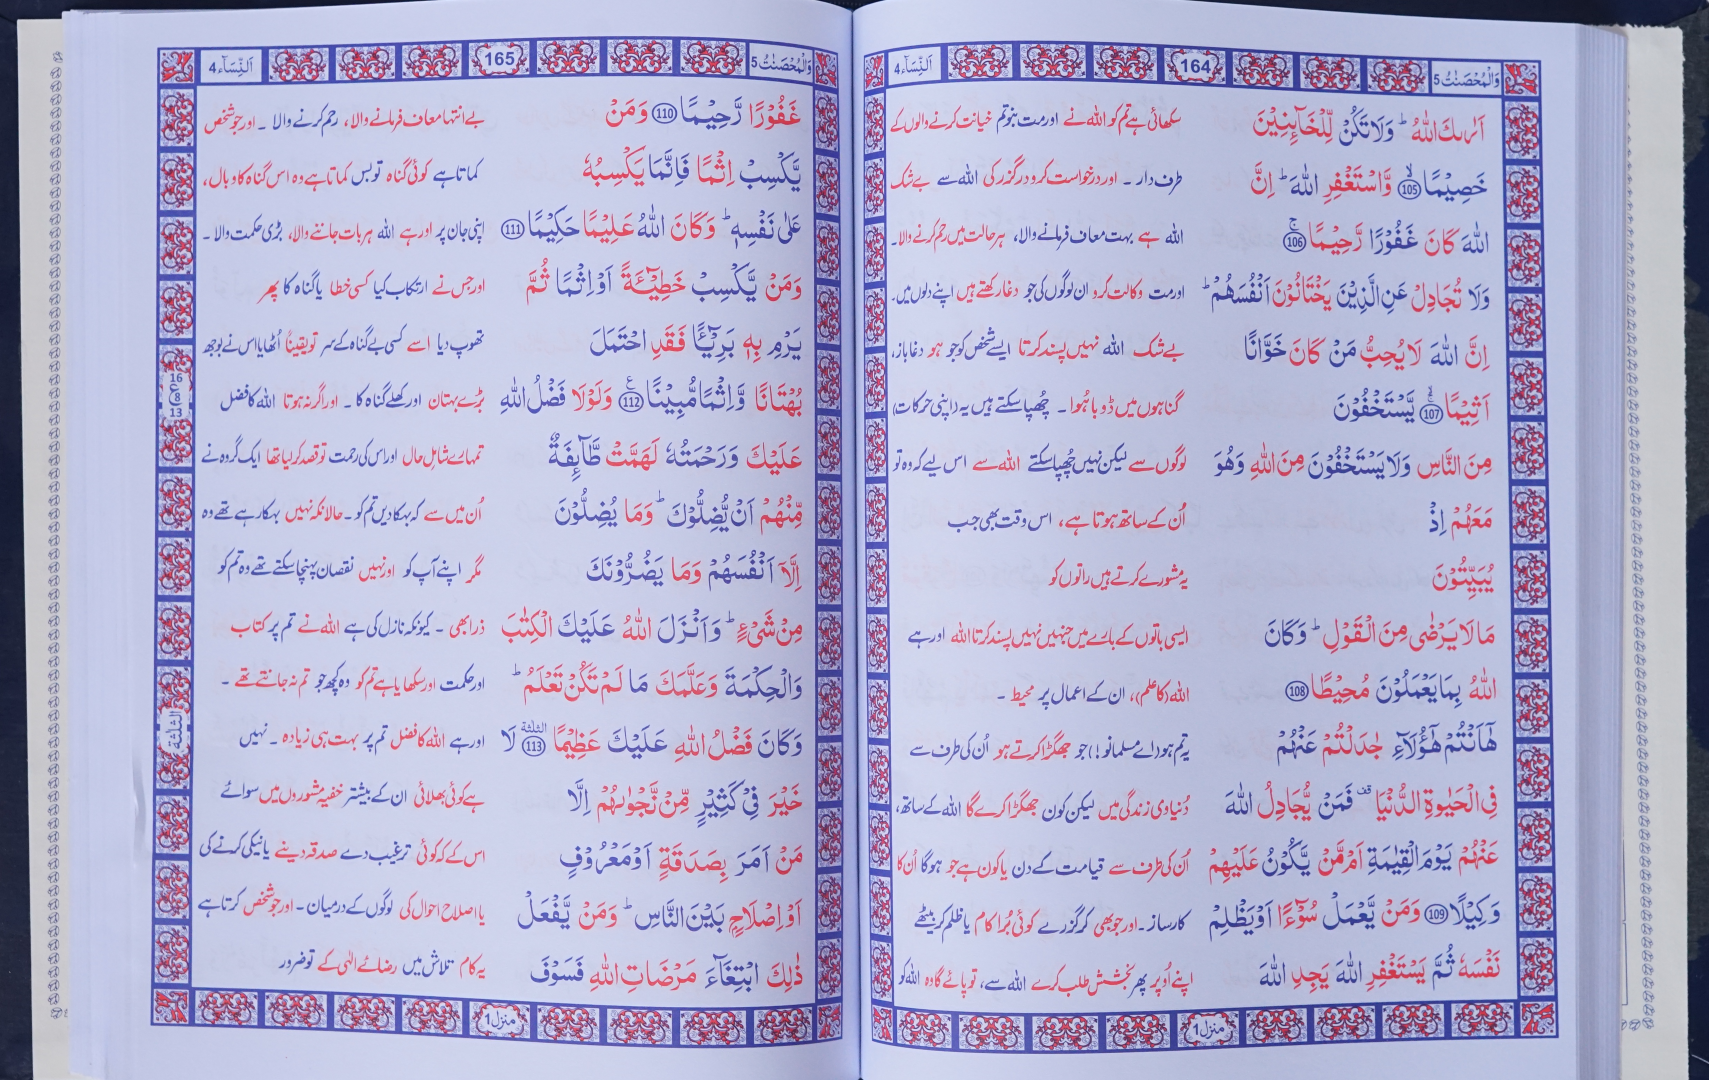 وَالْمُحْصَنٰتُ 5
164
اَلنِّسَآء 4
اَرٰىكَ اللّٰهُ ؕ وَلَا تَكُنْ لِّلْخَآئِنِيْنَ سکھائی ہے تم کو اللہ نے اور مت بنو تم خیانت کرنے والوں کے
خَصِيْمًا 105 وَّاسْتَغْفِرِ اللّٰهَ ؕ اِنَّ طرف دار ۔ اور درخواست کرو درگزر کی اللہ سے بے شک
اللّٰهَ كَانَ غَفُوْرًا رَّحِيْمًا 106 اللہ ہے بہت معاف فرمانے والا، ہر حالت میں رحم کرنے والا۔
وَلَا تُجَادِلْ عَنِ الَّذِيْنَ يَخْتَانُوْنَ اَنْفُسَهُمْ ؕ اور مت وکالت کرو ان لوگوں کی جو دغا رکھتے ہیں اپنے دلوں میں۔
اِنَّ اللّٰهَ لَا يُحِبُّ مَنْ كَانَ خَوَّانًا بے شک اللہ نہیں پسند کرتا ایسے شخص کو جو ہو دغا باز،
اَثِيْمًا 107 يَّسْتَخْفُوْنَ گناہوں میں ڈوبا ہُوا ۔ چُھپا سکتے ہیں یہ (اپنی حرکات)
مِنَ النَّاسِ وَلَا يَسْتَخْفُوْنَ مِنَ اللّٰهِ وَهُوَ لوگوں سے لیکن نہیں چُھپا سکتے اللہ سے اس لیے کہ وہ تو
مَعَهُمْ اِذْ اُن کے ساتھ ہوتا ہے، اس وقت بھی جب
يُبَيِّتُوْنَ یہ مشورے کرتے ہیں راتوں کو
مَا لَا يَرْضٰى مِنَ الْقَوْلِ ؕ وَكَانَ ایسی باتوں کے بارے میں جنہیں نہیں پسند کرتا اللہ اور ہے
اللّٰهُ بِمَا يَعْمَلُوْنَ مُحِيْطًا 108 اللہ (کا علم)، ان کے اعمال پر محیط ۔
هٰٓاَنْتُمْ هٰٓؤُلَآءِ جٰدَلْتُمْ عَنْهُمْ یہ تم ہو (اے مسلمانو!) جو جھگڑا کرتے ہو اُن کی طرف سے
فِي الْحَيٰوةِ الدُّنْيَا قف فَمَنْ يُّجَادِلُ اللّٰهَ دُنیاوی زندگی میں لیکن کون جھگڑا کرے گا اللہ کے ساتھ،
عَنْهُمْ يَوْمَ الْقِيٰمَةِ اَمْ مَّنْ يَّكُوْنُ عَلَيْهِمْ اُن کی طرف سے قیامت کے دن یا کون ہے جو ہوگا اُن کا
وَكِيْلًا 109 وَمَنْ يَّعْمَلْ سُوْٓءًا اَوْ يَظْلِمْ کارساز ۔ اور جو بھی کر گزرے کوئی بُرا کام یا ظلم کر بیٹھے
نَفْسَهٗ ثُمَّ يَسْتَغْفِرِ اللّٰهَ يَجِدِ اللّٰهَ اپنے اُوپر پھر بخشش طلب کرے اللہ سے، تو پائے گا وہ اللہ کو
منزل 1
وَالْمُحْصَنٰتُ 5
165
اَلنِّسَآء 4
غَفُوْرًا رَّحِيْمًا 110 وَمَنْ بے انتہا معاف فرمانے والا، رحم کرنے والا ۔ اور جو شخص
يَّكْسِبْ اِثْمًا فَاِنَّمَا يَكْسِبُهٗ کماتا ہے کوئی گناہ تو بس کماتا ہے وہ اس گناہ کا وبال،
عَلٰى نَفْسِهٖ ؕ وَكَانَ اللّٰهُ عَلِيْمًا حَكِيْمًا 111 اپنی جان پر اور ہے اللہ ہر بات جاننے والا، بڑی حکمت والا ۔
وَمَنْ يَّكْسِبْ خَطِيْٓئَةً اَوْ اِثْمًا ثُمَّ اور جس نے ارتکاب کیا کسی خطا یا گناہ کا پھر
يَرْمِ بِهٖ بَرِيْٓئًا فَقَدِ احْتَمَلَ تھوپ دیا اسے کسی بے گناہ کے سر تو یقیناً اُٹھایا اس نے بوجھ
بُهْتَانًا وَّاِثْمًا مُّبِيْنًا 112 وَلَوْلَا فَضْلُ اللّٰهِ بڑے بہتان اور کھلے گناہ کا ۔ اور اگر نہ ہوتا اللہ کا فضل
16
ع
8
13
عَلَيْكَ وَرَحْمَتُهٗ لَهَمَّتْ طَّآئِفَةٌ تمہارے شاملِ حال اور اس کی رحمت تو قصد کر لیا تھا ایک گروہ نے
مِّنْهُمْ اَنْ يُّضِلُّوْكَ ؕ وَمَا يُضِلُّوْنَ اُن میں سے کہ بہکا دیں تم کو ۔ حالانکہ نہیں بہکا رہے تھے وہ
اِلَّآ اَنْفُسَهُمْ وَمَا يَضُرُّوْنَكَ مگر اپنے آپ کو اور نہیں نقصان پہنچا سکتے تھے وہ تم کو
مِنْ شَيْءٍ ؕ وَاَنْزَلَ اللّٰهُ عَلَيْكَ الْكِتٰبَ ذرا بھی ۔ کیونکہ نازل کی ہے اللہ نے تم پر کتاب
وَالْحِكْمَةَ وَعَلَّمَكَ مَا لَمْ تَكُنْ تَعْلَمُ ؕ اور حکمت اور سکھایا ہے تم کو وہ کچھ جو تم نہ جانتے تھے ۔
وَكَانَ فَضْلُ اللّٰهِ عَلَيْكَ عَظِيْمًا 113 الثلثة لَا اور ہے اللہ کا فضل تم پر بہت ہی زیادہ ۔ نہیں
الثلثة
خَيْرَ فِيْ كَثِيْرٍ مِّنْ نَّجْوٰىهُمْ اِلَّا ہے کوئی بھلائی ان کے بیشتر خفیہ مشوروں میں سوائے
مَنْ اَمَرَ بِصَدَقَةٍ اَوْ مَعْرُوْفٍ اس کے کہ کوئی ترغیب دے صدقہ دینے یا نیکی کرنے کی
اَوْ اِصْلَاحٍۭ بَيْنَ النَّاسِ ؕ وَمَنْ يَّفْعَلْ یا اصلاح احوال کی لوگوں کے درمیان ۔ اور جو شخص کرتا ہے
ذٰلِكَ ابْتِغَآءَ مَرْضَاتِ اللّٰهِ فَسَوْفَ یہ کام تلاش میں رضائے الٰہی کے تو ضرور
منزل 1